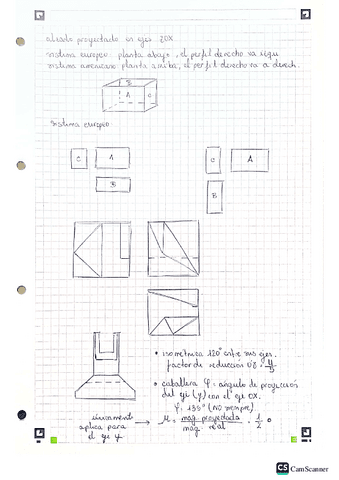 alzado proyectado en ejes ZOX
sistema europeo: planta abajo, el perfil derecho va izqu
sistema americano planta arriba, el perfil derecho va a derech.
B
A
C
sistema europeo
C
A
B
C
A
B
• isometrica 120° entre sus ejes.
factor de reducción 0'8
• caballera φ = angulo de proyeccion
del eje (y) con el eje OX.
φ: 135° (no siempre).
únicamente
aplica para
el eje y
→ μ = mag. proyectada / mag. real
1/2
CS CamScanner